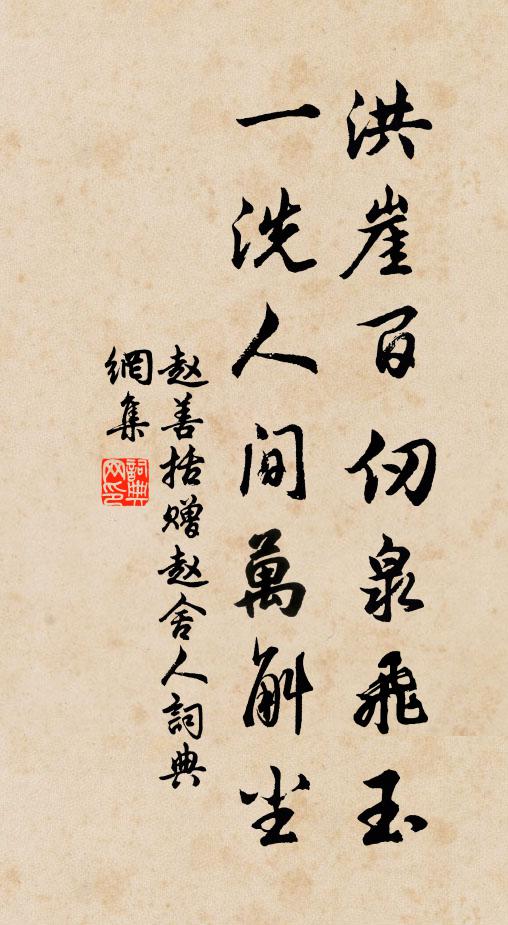 洪崖百仞泉飛玉
一洗人間萬斛塵
赵善括赠赵舍人詞典
網集
詞典網印